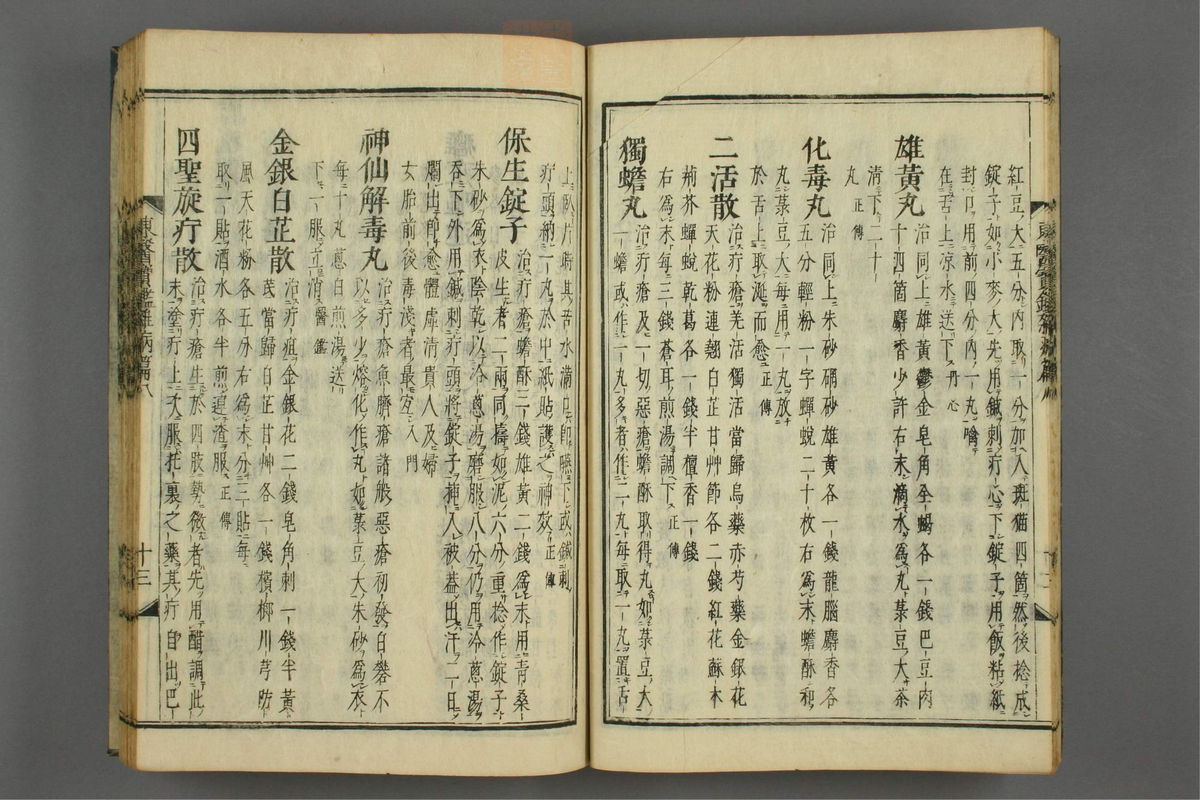 紅豆大五分內取一分加入斑猫四箇然後捻成
錠子如小麥大先用鍼刺疔心下錠子用飯粘紙
封卽用前四分內一丸噙
在舌上凉水送下丹心
雄黃丸治同上雄黃鬱金皂角全蝎各一錢巴豆肉
十四箇麝香少許右末滴水爲丸菉豆大茶
淸下二十
丸正傳
化毒丸治同上朱砂硇砂雄黃各一錢龍腦麝香各
五分輕粉一字蟬蛻二十枚右爲末蟾酥和
丸菉豆大每用一丸放
於舌上取涎而愈正傳
二活散治疔瘡羌活獨活當歸烏藥赤芍藥金銀花
天花粉連翹白芷甘艸節各二錢紅花蘇木
荊芥蟬蛻乾葛各一錢半檀香一錢
右爲末每三錢蒼耳煎湯調下正傳
獨蟾丸治疔瘡及一切惡瘡蟾酥取得丸如菉豆大
一蟾或作一丸多者作二丸每取一丸置舌
上臥片時其苦水滿口卽嚥下或鍼刺
疔頭納一丸於中紙貼護之神效正傳
保生錠子治疔瘡蟾酥三錢雄黃二錢爲末用靑桑
皮生者二兩同擣如泥六分重捻作錠子
朱砂爲衣陰乾以冷葱湯磨服八分仍用冷葱湯
吞下外用鍼刺疔頭將錠子揷入被盖出汗二日
爛出卽愈體虛淸貴人及婦
女胎前後毒淺者最宜入門
神仙解毒丸治疔瘡魚臍瘡諸般惡瘡初發白礬不
以多少熔化作丸如菉豆大朱砂爲衣
每十丸葱白煎湯送
下一服立消醫鑑
金銀白芷散治疔疽金銀花二錢皂角刺一錢半黃
芪當歸白芷甘艸各一錢檳榔川芎防
風天花粉各五分右爲末分三貼每
取一貼酒水各半煎連渣服正傳
四聖旋疔散治疔瘡生於四肢勢微者先用醋調此
末塗疔上又服托裏之藥其疔自出巴
十三